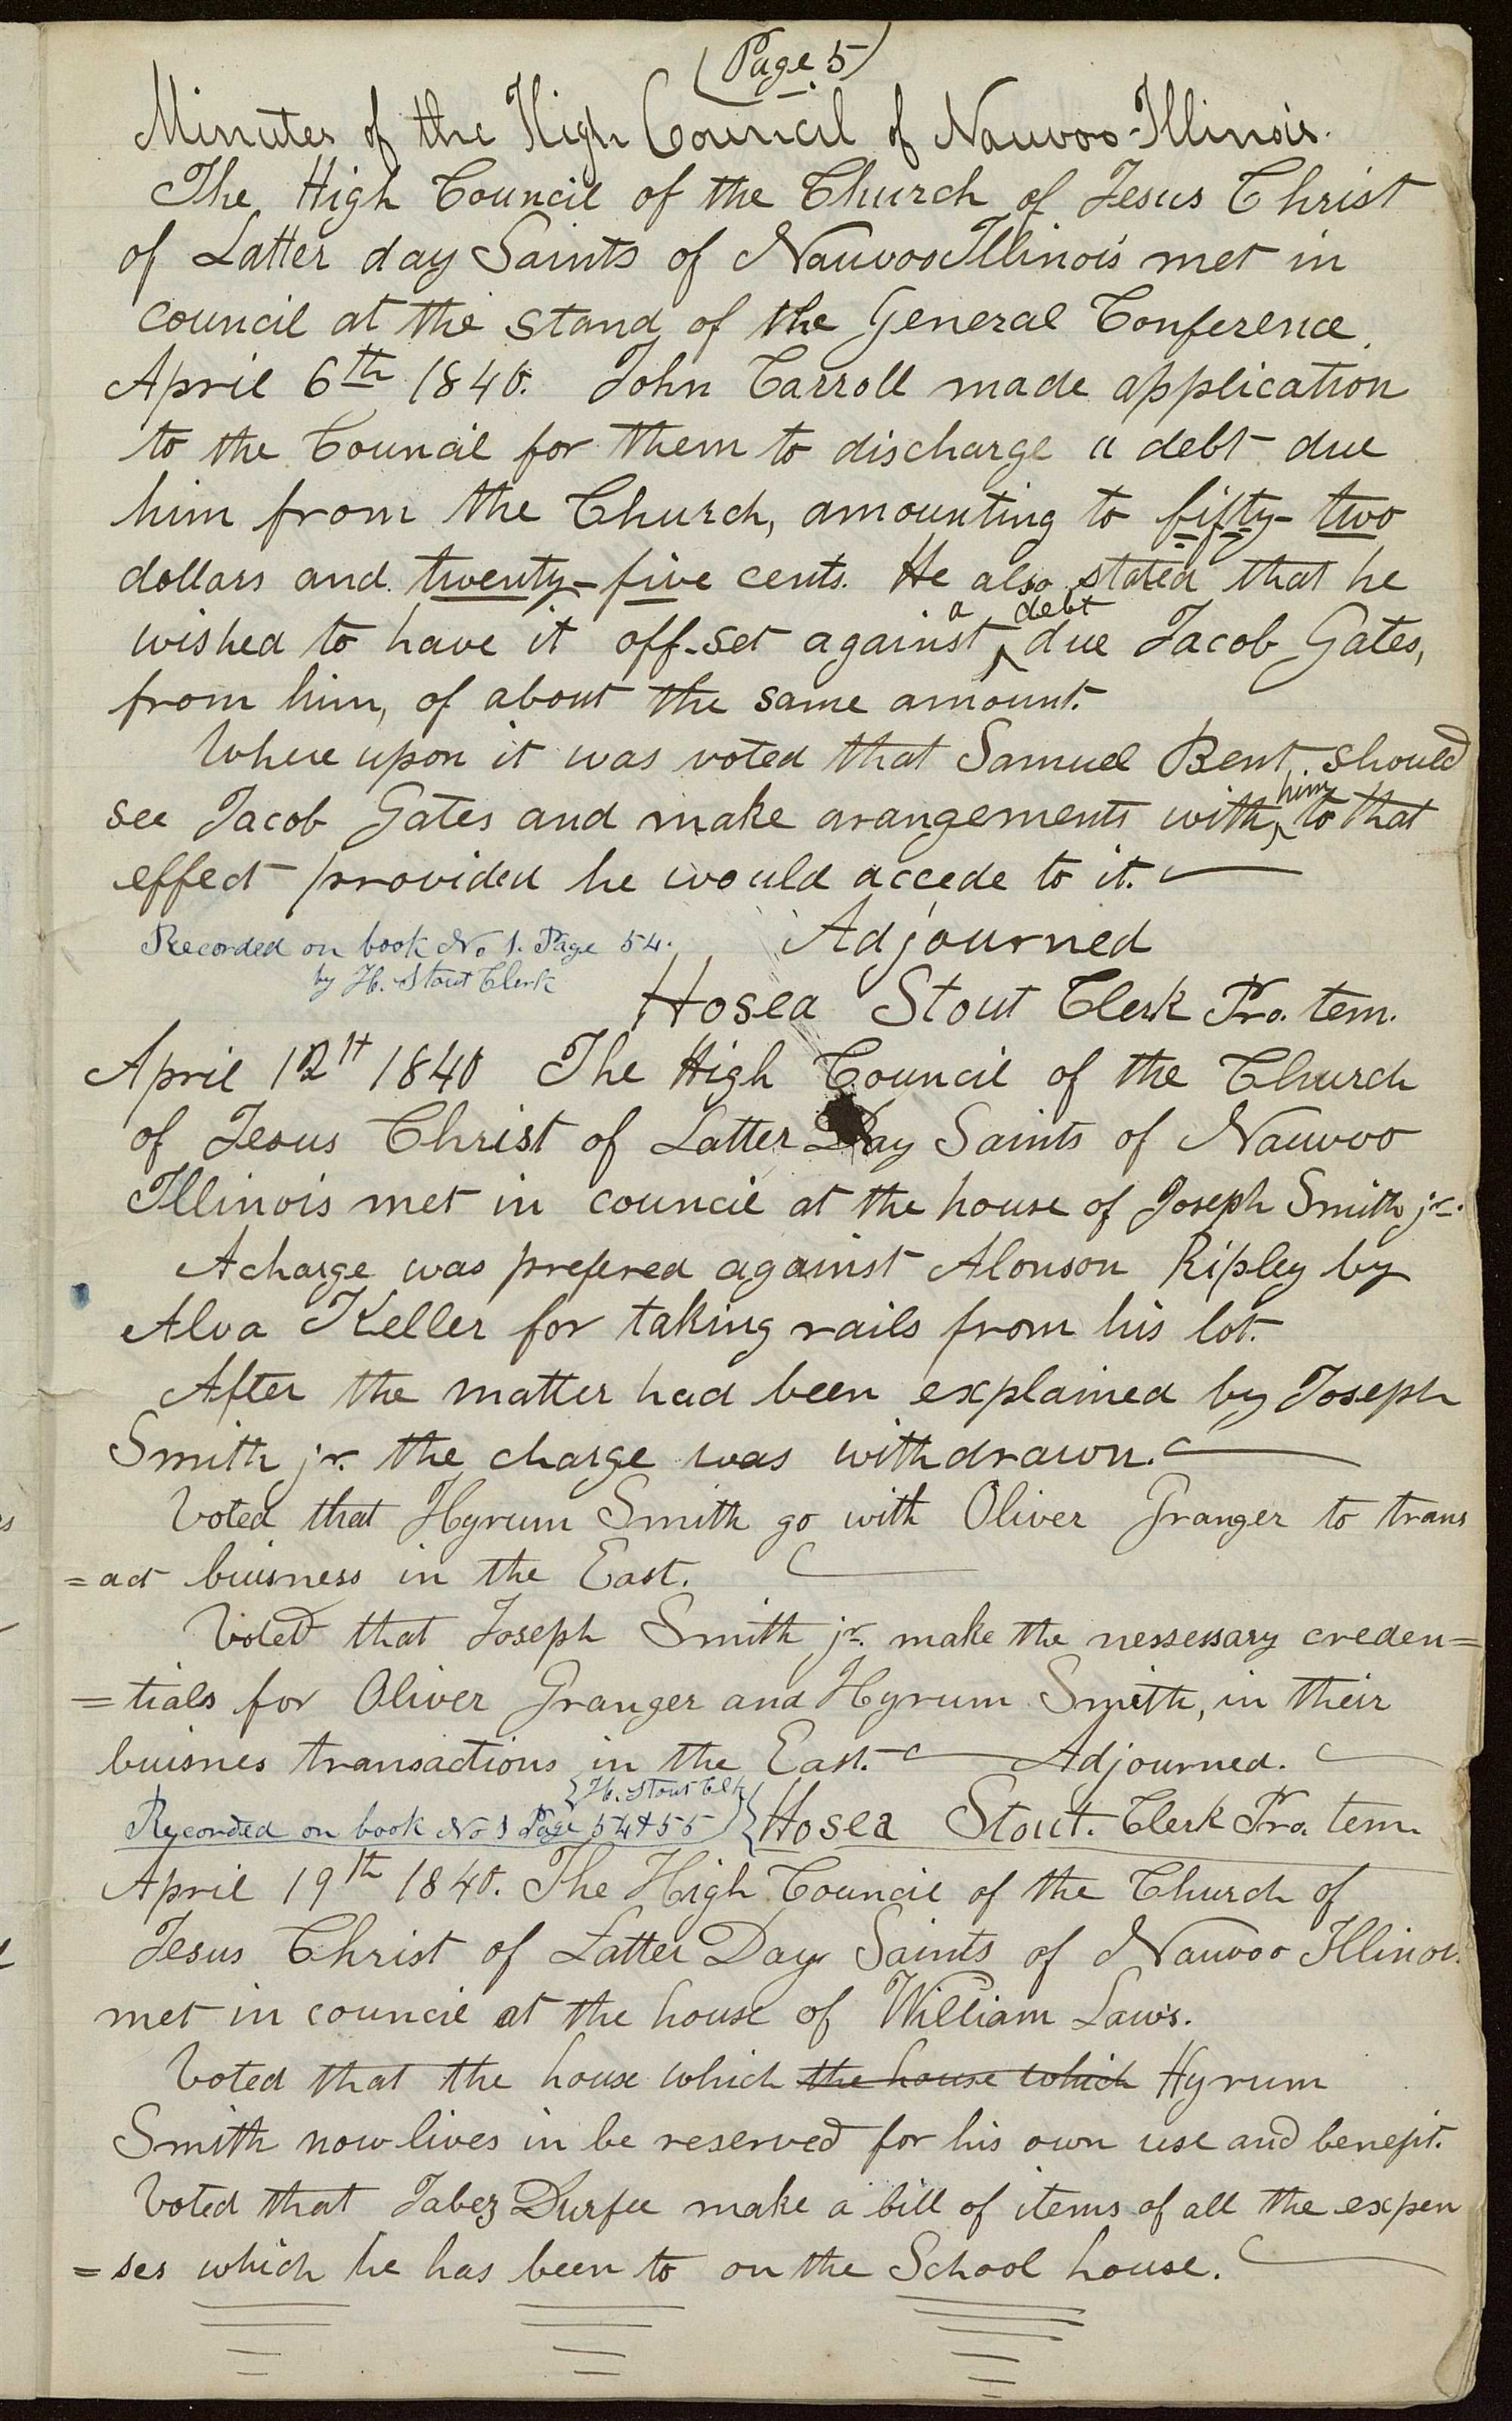 (Page 5)
Minutes of the High Council of Nauvoo Illinois.
The High Council of the Church of Jesus Christ
of Latter day Saints of Nauvoo Illinois met in
council at the stand of the General Conference
April 6th 1840. John Carroll made application
to the Council for them to discharge a debt due
him from the Church, amounting to fifty-two
dollars and twenty-five cents. He also stated that he
a debt
wished to have it off-set against ‸ due Jacob Gates,
from him, of about the same amount.
Where upon it was voted that Samuel Bent should
him
see Jacob Gates and make arangements with ‸ to that
effect provided he would accede to it.
Recorded on book No 1. Page 54. Adjourned
by H. Stout Clerk
Hosea Stout Clerk Pro. tem.
April 12th 1840 The High Council of the Church
of Jesus Christ of Latter Day Saints of Nauvoo
Illinois met in council at the house of Joseph Smith jr.
A charge was prefered against Alonson Ripley by
Alva Keller for taking rails from his lot.
After the matter had been explained by Joseph
Smith jr. the charge was withdrawn.
Voted that Hyrum Smith go with Oliver Granger to trans
=act buisness in the East.
Voted that Joseph Smith jr. make the nessessary creden=
=tials for Oliver Granger and Hyrum Smith, in their
buisnes transactions in the East. Adjourned.
H. Stout Clk
Recorded on book No 1 Page 54 & 55 Hosea Stout. Clerk Pro. tem.
April 19th 1840. The High Council of the Church of
Jesus Christ of Latter Day Saints of Nauvoo Illinois
met in council at the house of William Laws.
Voted that the house which the house which Hyrum
Smith now lives in be reserved for his own use and benefit.
Voted that Jabez Durfee make a bill of items of all the expen
=ses which he has been to on the School house.